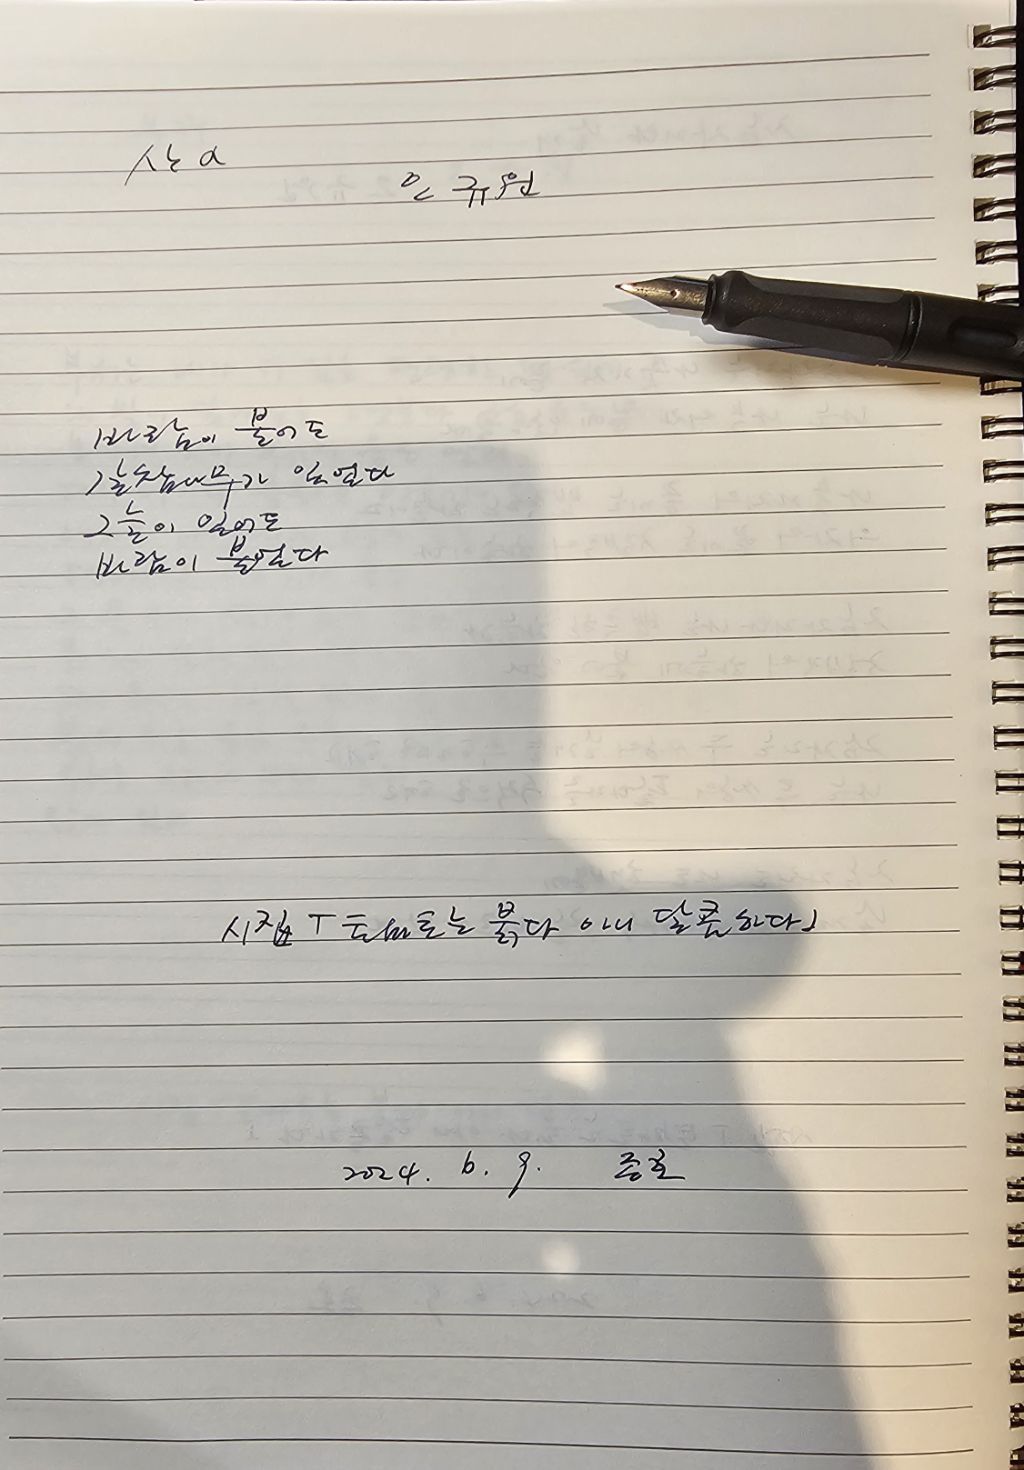 산 a
오 규원
바람이 불어도
갈참나무가 있었다
그늘이 있어도
바람이 불었다
시집 「토마토는 붉다 아니 달콤하다」
2024. 6. 9.